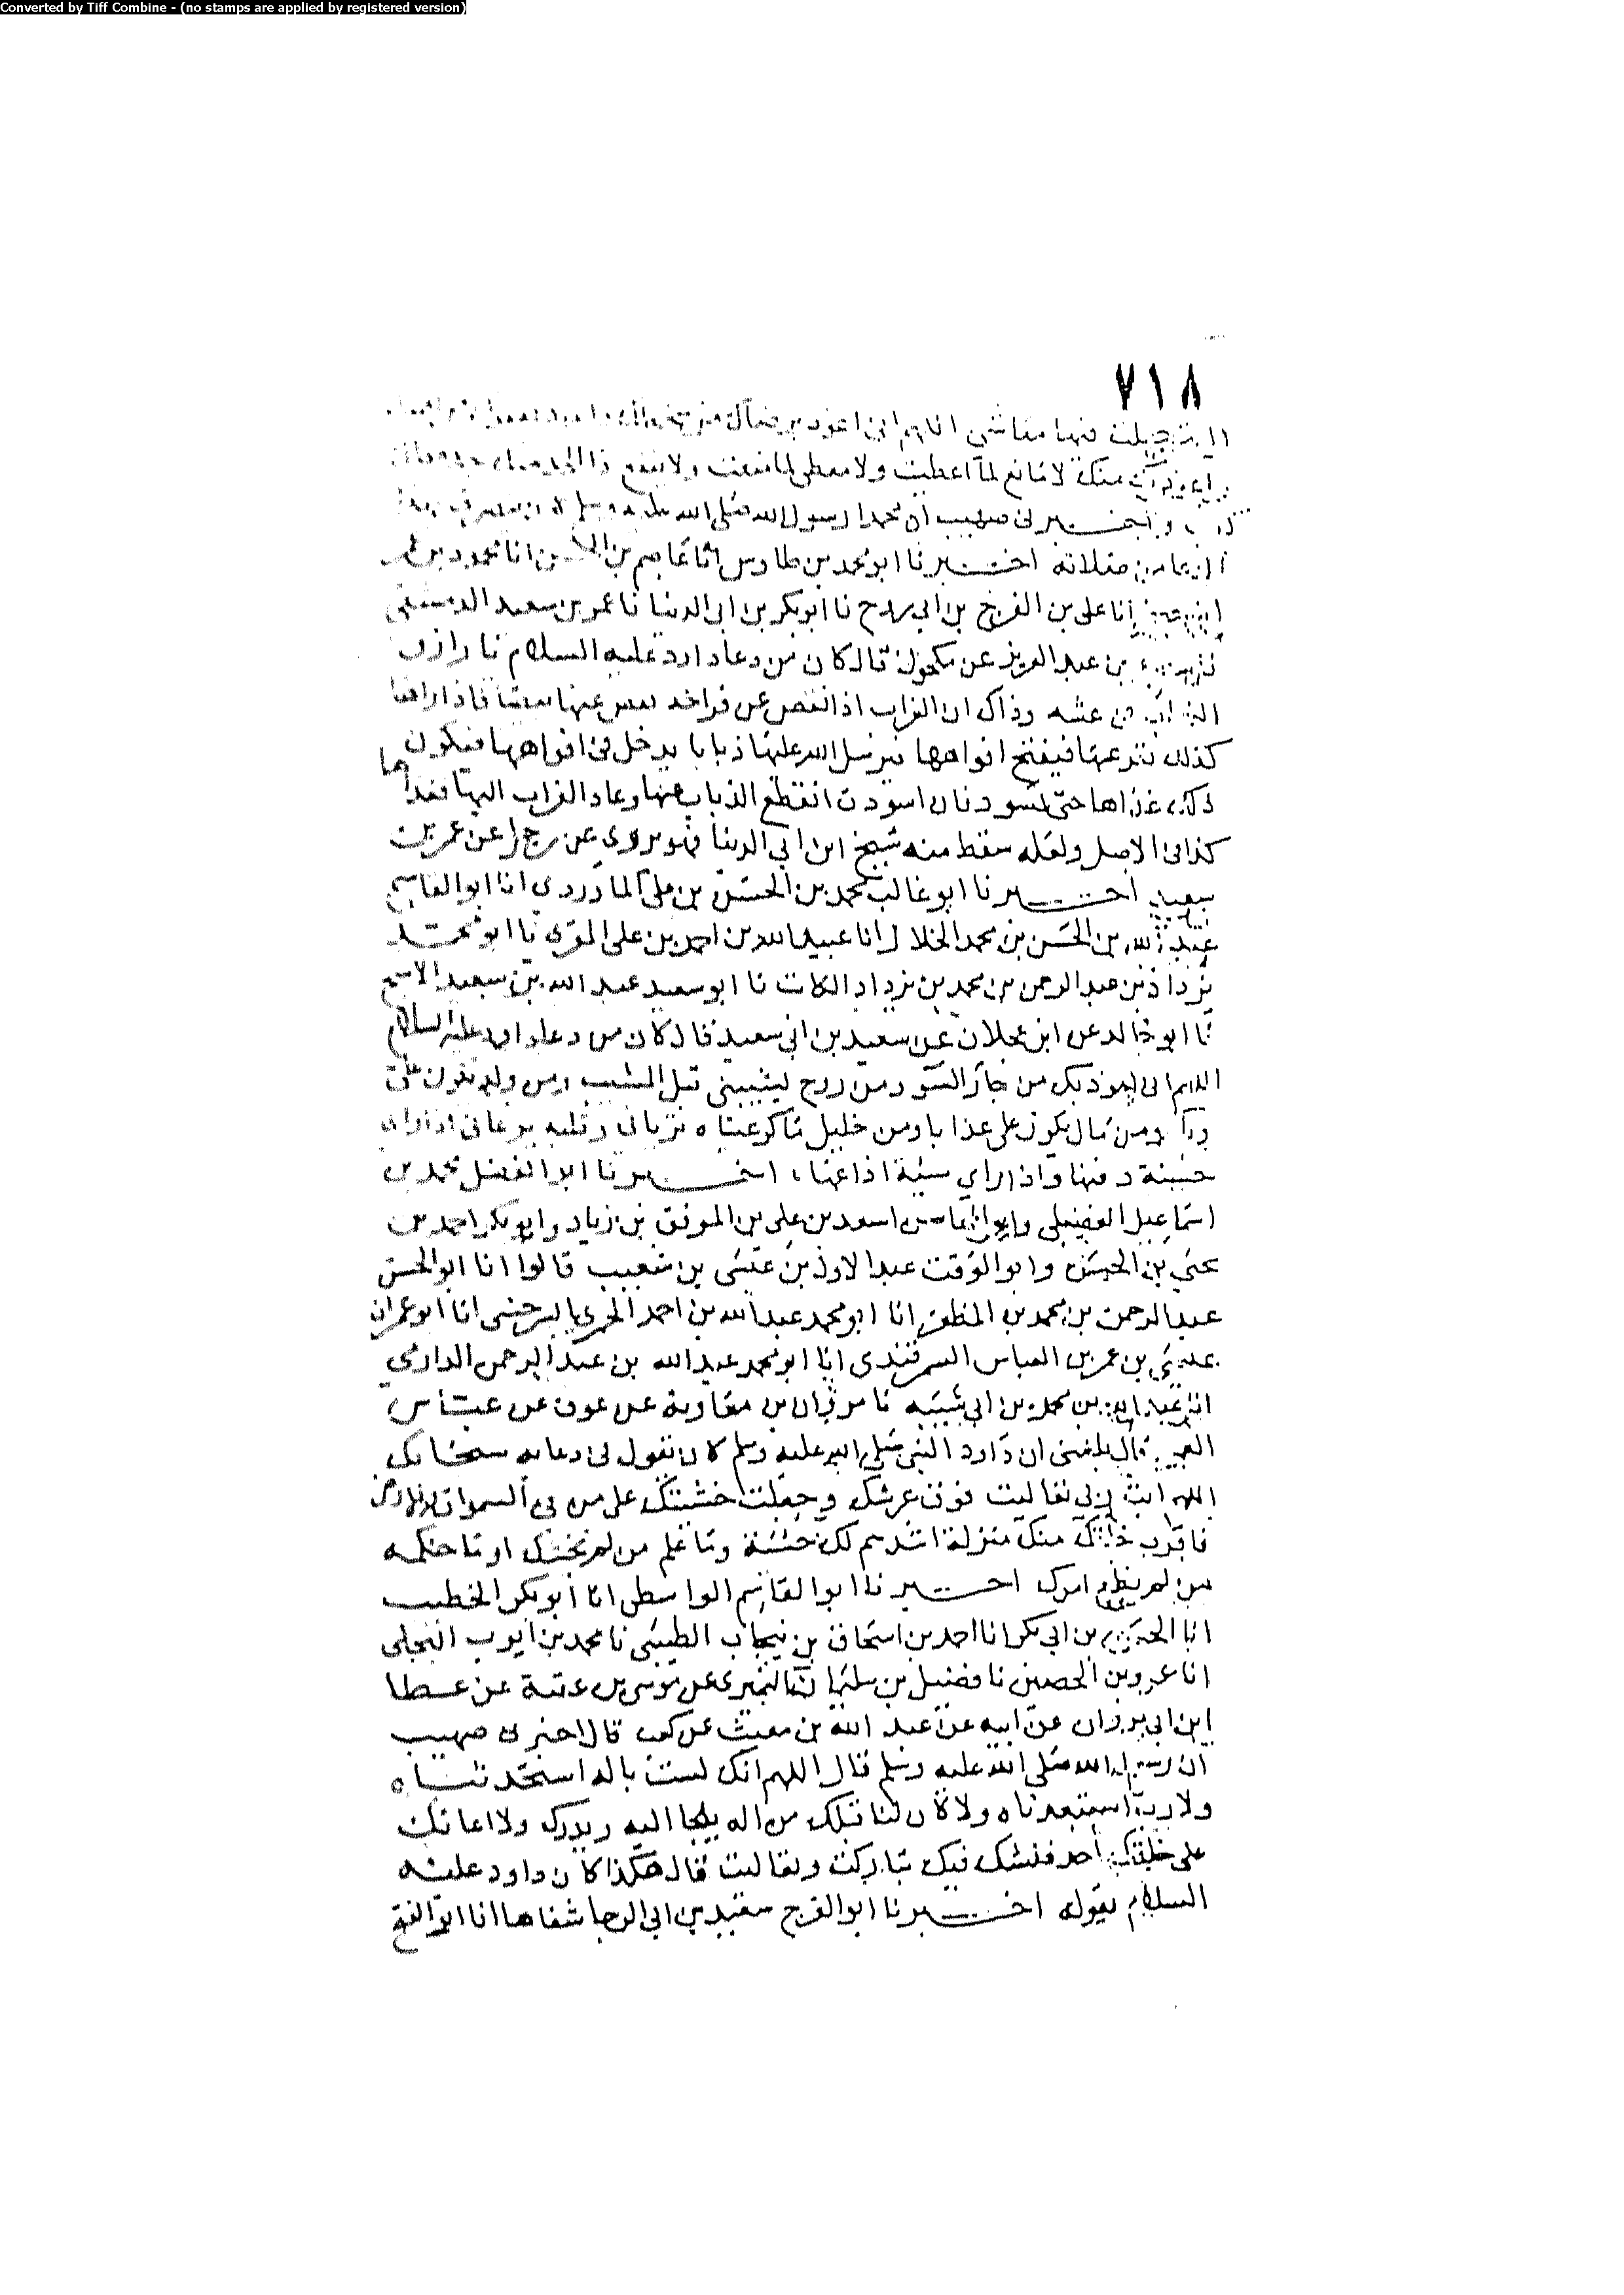 Converted by Tiff Combine - (no stamps are applied by registered version)
٧١٨
التي جعلت فيها معاشي اللهم اني اعوذ برضاك من
منك لا مانع لما اعطيت ولا معطي لما منعت ولا ينفع ذا الجد
صهيب ان محمدا رسول الله صلى الله عليه وسلم
من صلاته اخبرنا ابو محمد بن طاوس انا عاصم بن الحسن انا محمود بن عمر
انا علي بن الفرج بن ابي روح نا ابو بكر بن ابي الدنيا نا عمر بن سعيد الدمشقي
بن عبد العزيز عن مكحول قال كان من دعا داود عليه السلام يا رازق
الغراب من عشه وذاك ان الغراب اذا نقص عن فراخه نقص عنها بيضا فاذا راها
كذلك نفر عنها فيفتح افواهها فيرسل الله عليها ذبابا يدخل في افواهها فيكون
ذلك غذاها حتى تسود فان اسودت انقطع الذباب عنها وعاد الغراب اليها فغذاها
كذا في الاصل ولعله سقط منه شيخ ابن ابي الدنيا فهو يروي عن رجل عن عمر بن
سعيد اخبرنا ابو غالب محمد بن الحسن بن علي الماوردي انا ابو القاسم
عبد الله بن الحسن بن محمد الخلال انا عبيد الله بن احمد بن علي المقرى نا ابو محمد
يزداد بن عبد الرحمن بن محمد بن يزداد الكاتب نا ابو سعيد عبد الله بن سعيد الاشج
نا ابو خالد عن ابن عجلان عن سعيد بن ابي سعيد قال كان من دعا داود عليه السلام
اللهم اني اعوذ بك من جار السوء ومن زوج تشيبني قبل المشيب ومن ولد يكون علي
ربا ومن مال يكون علي عذابا ومن خليل ماكر عيناه ترياني وقلبه يرعاني اذا راى
حسنة دفنها واذا راي سيئة اذاعها اخبرنا ابو الفضل محمد بن
اسماعيل الفضيلي وابو المحاسن اسعد بن علي بن الموفق بن زياد وابو بكر احمد بن
يحيى بن الحسن وابو الوقت عبد الاول بن عيسى بن شعيب قالوا انا ابو الحسن
عبد الرحمن بن محمد بن المظفر انا ابو محمد عبد الله بن احمد الحموي السرخسي انا ابو عمران
عيسى بن عمر بن العباس السمرقندي انا ابو محمد عبد الله بن عبد الرحمن الدارمي
انا عبد الله بن محمد بن ابي شيبه نا مروان بن معاوية عن عوف عن عباس
العمي قال بلغني ان داود النبي صلى الله عليه وسلم كان يقول في دعائه سبحانك
اللهم انت ربي تعاليت فوق عرشك وجعلت خشيتك على من في السموات والارض
فاقرب خلقك منك منزلة اشدهم لك خشية وما علم من لم يخشك او ما حكمه
من لم يطع امرك اخبرنا ابو القاسم الواسطي انا ابو بكر الخطيب
انا الحسن بن ابي بكر انا احمد بن اسحاق بن نيخاب الطيبي نا محمد بن ايوب البجلي
انا عمرو بن الحصين نا فضيل بن سليمان النميري عن موسى بن عقبة عن عطا
ابن ابي مروان عن ابيه عن عبد الله بن مغيث عن كعب قال اخبرني صهيب
ان رسول الله صلى الله عليه وسلم قال اللهم انك لست باله استحدثناه
ولا رب استبعدناه ولا كان لنا قبلك من اله يلجا اليه ويذرك ولا اعانك
على خلقك احد فنشك فيك تباركت وتعاليت قال هكذا كان داود عليه
السلام يقوله اخبرنا ابو الفرج سعيد بن ابي الرجا شفاها انا ابو الفتح